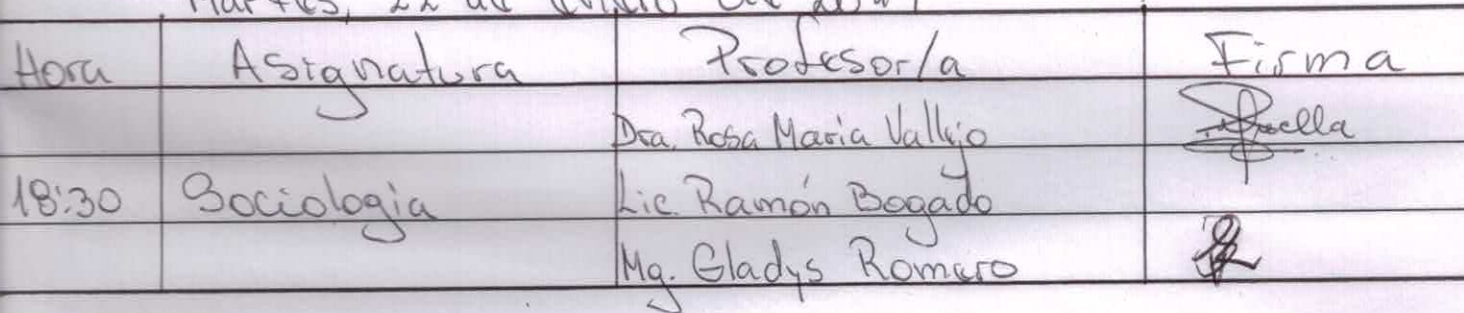 Martes, 22 de
Hora Asignatura Profesor/a Firma
Dra. Rosa Maria Vallejo
18:30 Sociologia Lic. Ramón Bogado
Mg. Gladys Romero